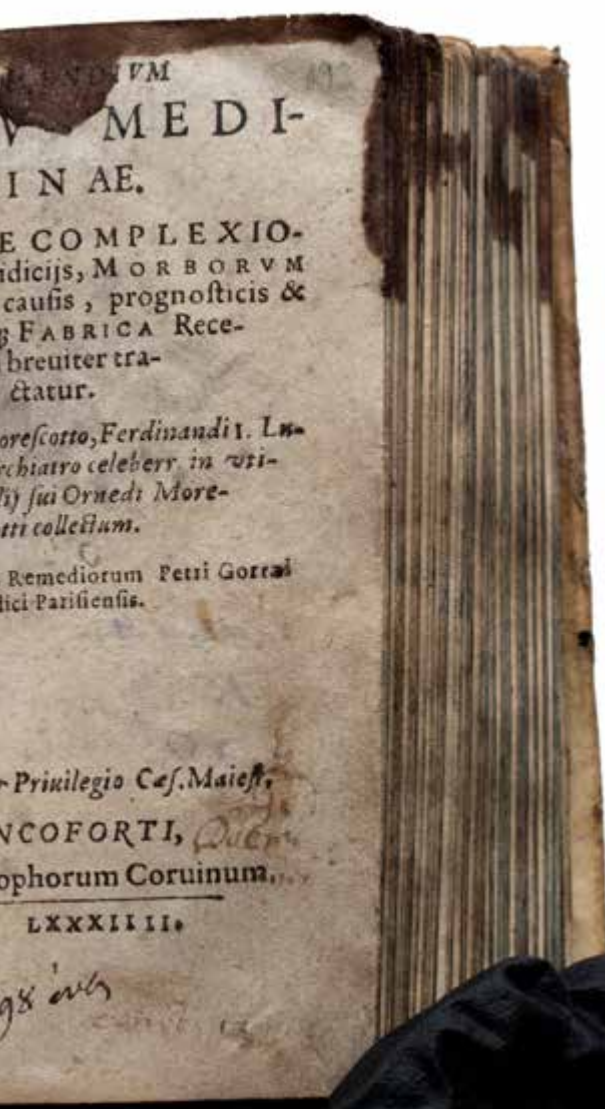 VM
MEDI-
INAE.
E COMPLEXIO-
idicijs, MORBORVM
cauſis, prognoſticis &
FABRICA Rece-
breuiter tra-
ctatur.
oreſcotto, Ferdinandi 1. Lu-
rchiatro celeberr. in vti-
lij ſui Ornedi More-
tti collectum.
Remediorum Petri Gorræi
dici Pariſienſis.
Priuilegio Cæſ. Maieſt.
NCOFORTI,
ophorum Coruinum.
LXXXIIII.